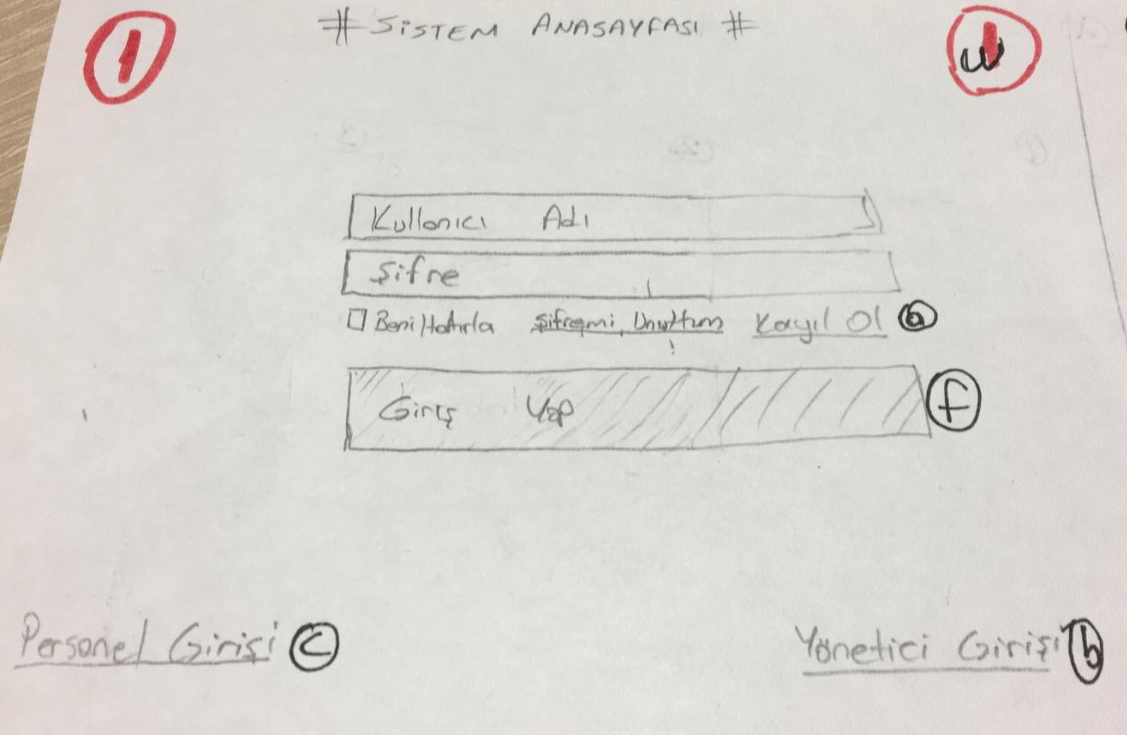 1
# SİSTEM ANASAYFASI #
Kullanıcı Adı
Şifre
Beni Hatırla Şifremi Unuttum Kayıl Ol a
Giriş Yap f
Personel Girişi c
Yönetici Girişi b